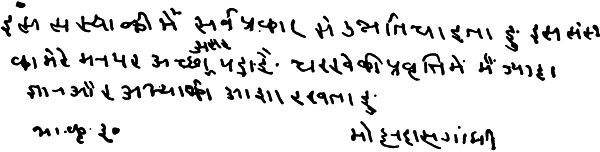 इस संस्थाकी मैं सर्व प्रकार से उन्नति चाहता हुं इस संस्था
का मेरे मन पर अच्छा असर पड़ा है. चरखे की प्रवृत्ति में मैं ज्यादा
ज्ञान और अभ्यासकी आशा रखता हुं
भा. कृ. १०
मोहनदास गांधी